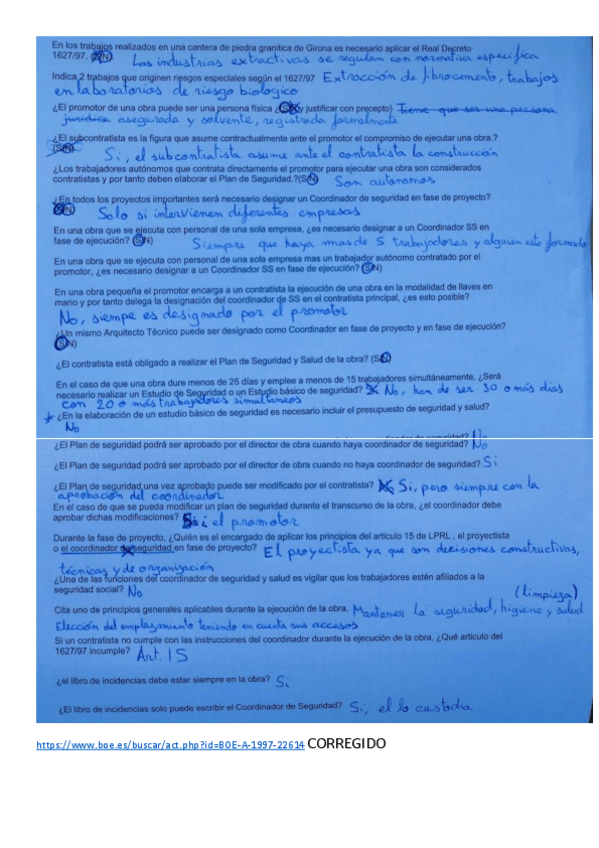 En los trabajos realizados en una cantera de piedra granítica de Girona es necesario aplicar el Real Decreto
1627/97. (S/N) Las industrias extractivas se regulan con normativa específica
Indica 2 trabajos que originen riesgos especiales según el 1627/97 Extracción de fibrocemento, trabajos
en laboratorios de riesgo biológico
¿El promotor de una obra puede ser una persona física ¿ y justificar con precepto) Tiene que ser una persona
jurídica asegurada y solvente, registrada formalmente
¿El subcontratista es la figura que asume contractualmente ante el promotor el compromiso de ejecutar una obra.?
(S/N) Si, el subcontratista asume ante el contratista la construcción
¿Los trabajadores autónomos que contrata directamente el promotor para ejecutar una obra son considerados
contratistas y por tanto deben elaborar el Plan de Seguridad.?(S/N) Son autonomos
¿En todos los proyectos importantes será necesario designar un Coordinador de seguridad en fase de proyecto?
(S/N) Solo si intervienen diferentes empresas
En una obra que se ejecuta con personal de una sola empresa, ¿es necesario designar a un Coordinador SS en
fase de ejecución? (S/N) Siempre que haya mas de 5 trabajadores y alguien este formado
En una obra que se ejecuta con personal de una sola empresa mas un trabajador autónomo contratado por el
promotor, ¿es necesario designar a un Coordinador SS en fase de ejecución? (S/N)
En una obra pequeña el promotor encarga a un contratista la ejecución de una obra en la modalidad de llaves en
mano y por tanto delega la designación del coordinador de SS en el contratista principal, ¿es esto posible?
No, siempe es designado por el promotor
¿Un mismo Arquitecto Técnico puede ser designado como Coordinador en fase de proyecto y en fase de ejecución?
(S/N)
¿El contratista está obligado a realizar el Plan de Seguridad y Salud de la obra? (S/N)
En el caso de que una obra dure menos de 25 días y emplee a menos de 15 trabajadores simultáneamente, ¿Será
necesario realizar un Estudio de Seguridad o un Estudio básico de seguridad? No, han de ser 30 o más dias
con 20 o más trabajadores simultáneos
¿En la elaboración de un estudio básico de seguridad es necesario incluir el presupuesto de seguridad y salud?
No
¿El Plan de seguridad podrá ser aprobado por el director de obra cuando haya coordinador de seguridad? No
¿El Plan de seguridad podrá ser aprobado por el director de obra cuando no haya coordinador de seguridad? Si
¿El Plan de seguridad una vez aprobado puede ser modificado por el contratista? Si, pero siempre con la
aprobación del coordinador
En el caso de que se pueda modificar un plan de seguridad durante el transcurso de la obra, ¿el coordinador debe
aprobar dichas modificaciones? el promotor
Durante la fase de proyecto, ¿Quién es el encargado de aplicar los principios del articulo 15 de LPRL , el proyectista
o el coordinador de seguridad en fase de proyecto? El proyectista ya que son decisiones constructivas,
técnicas y de organización
¿Una de las funciones del coordinador de seguridad y salud es vigilar que los trabajadores estén afiliados a la
seguridad social? No
(limpieza)
Cita uno de principios generales aplicables durante la ejecución de la obra. Mantener la seguridad, higiene y salud
Elección del emplazamiento teniendo en cuenta sus accesos
Si un contratista no cumple con las instrucciones del coordinador durante la ejecución de la obra, ¿Qué articulo del
1627/97 incumple? Art. 15
¿el libro de incidencias debe estar siempre en la obra? Si
¿El libro de incidencias solo puede escribir el Coordinador de Seguridad? Si, el lo custodia
https://www.boe.es/buscar/act.php?id=BOE-A-1997-22614 CORREGIDO